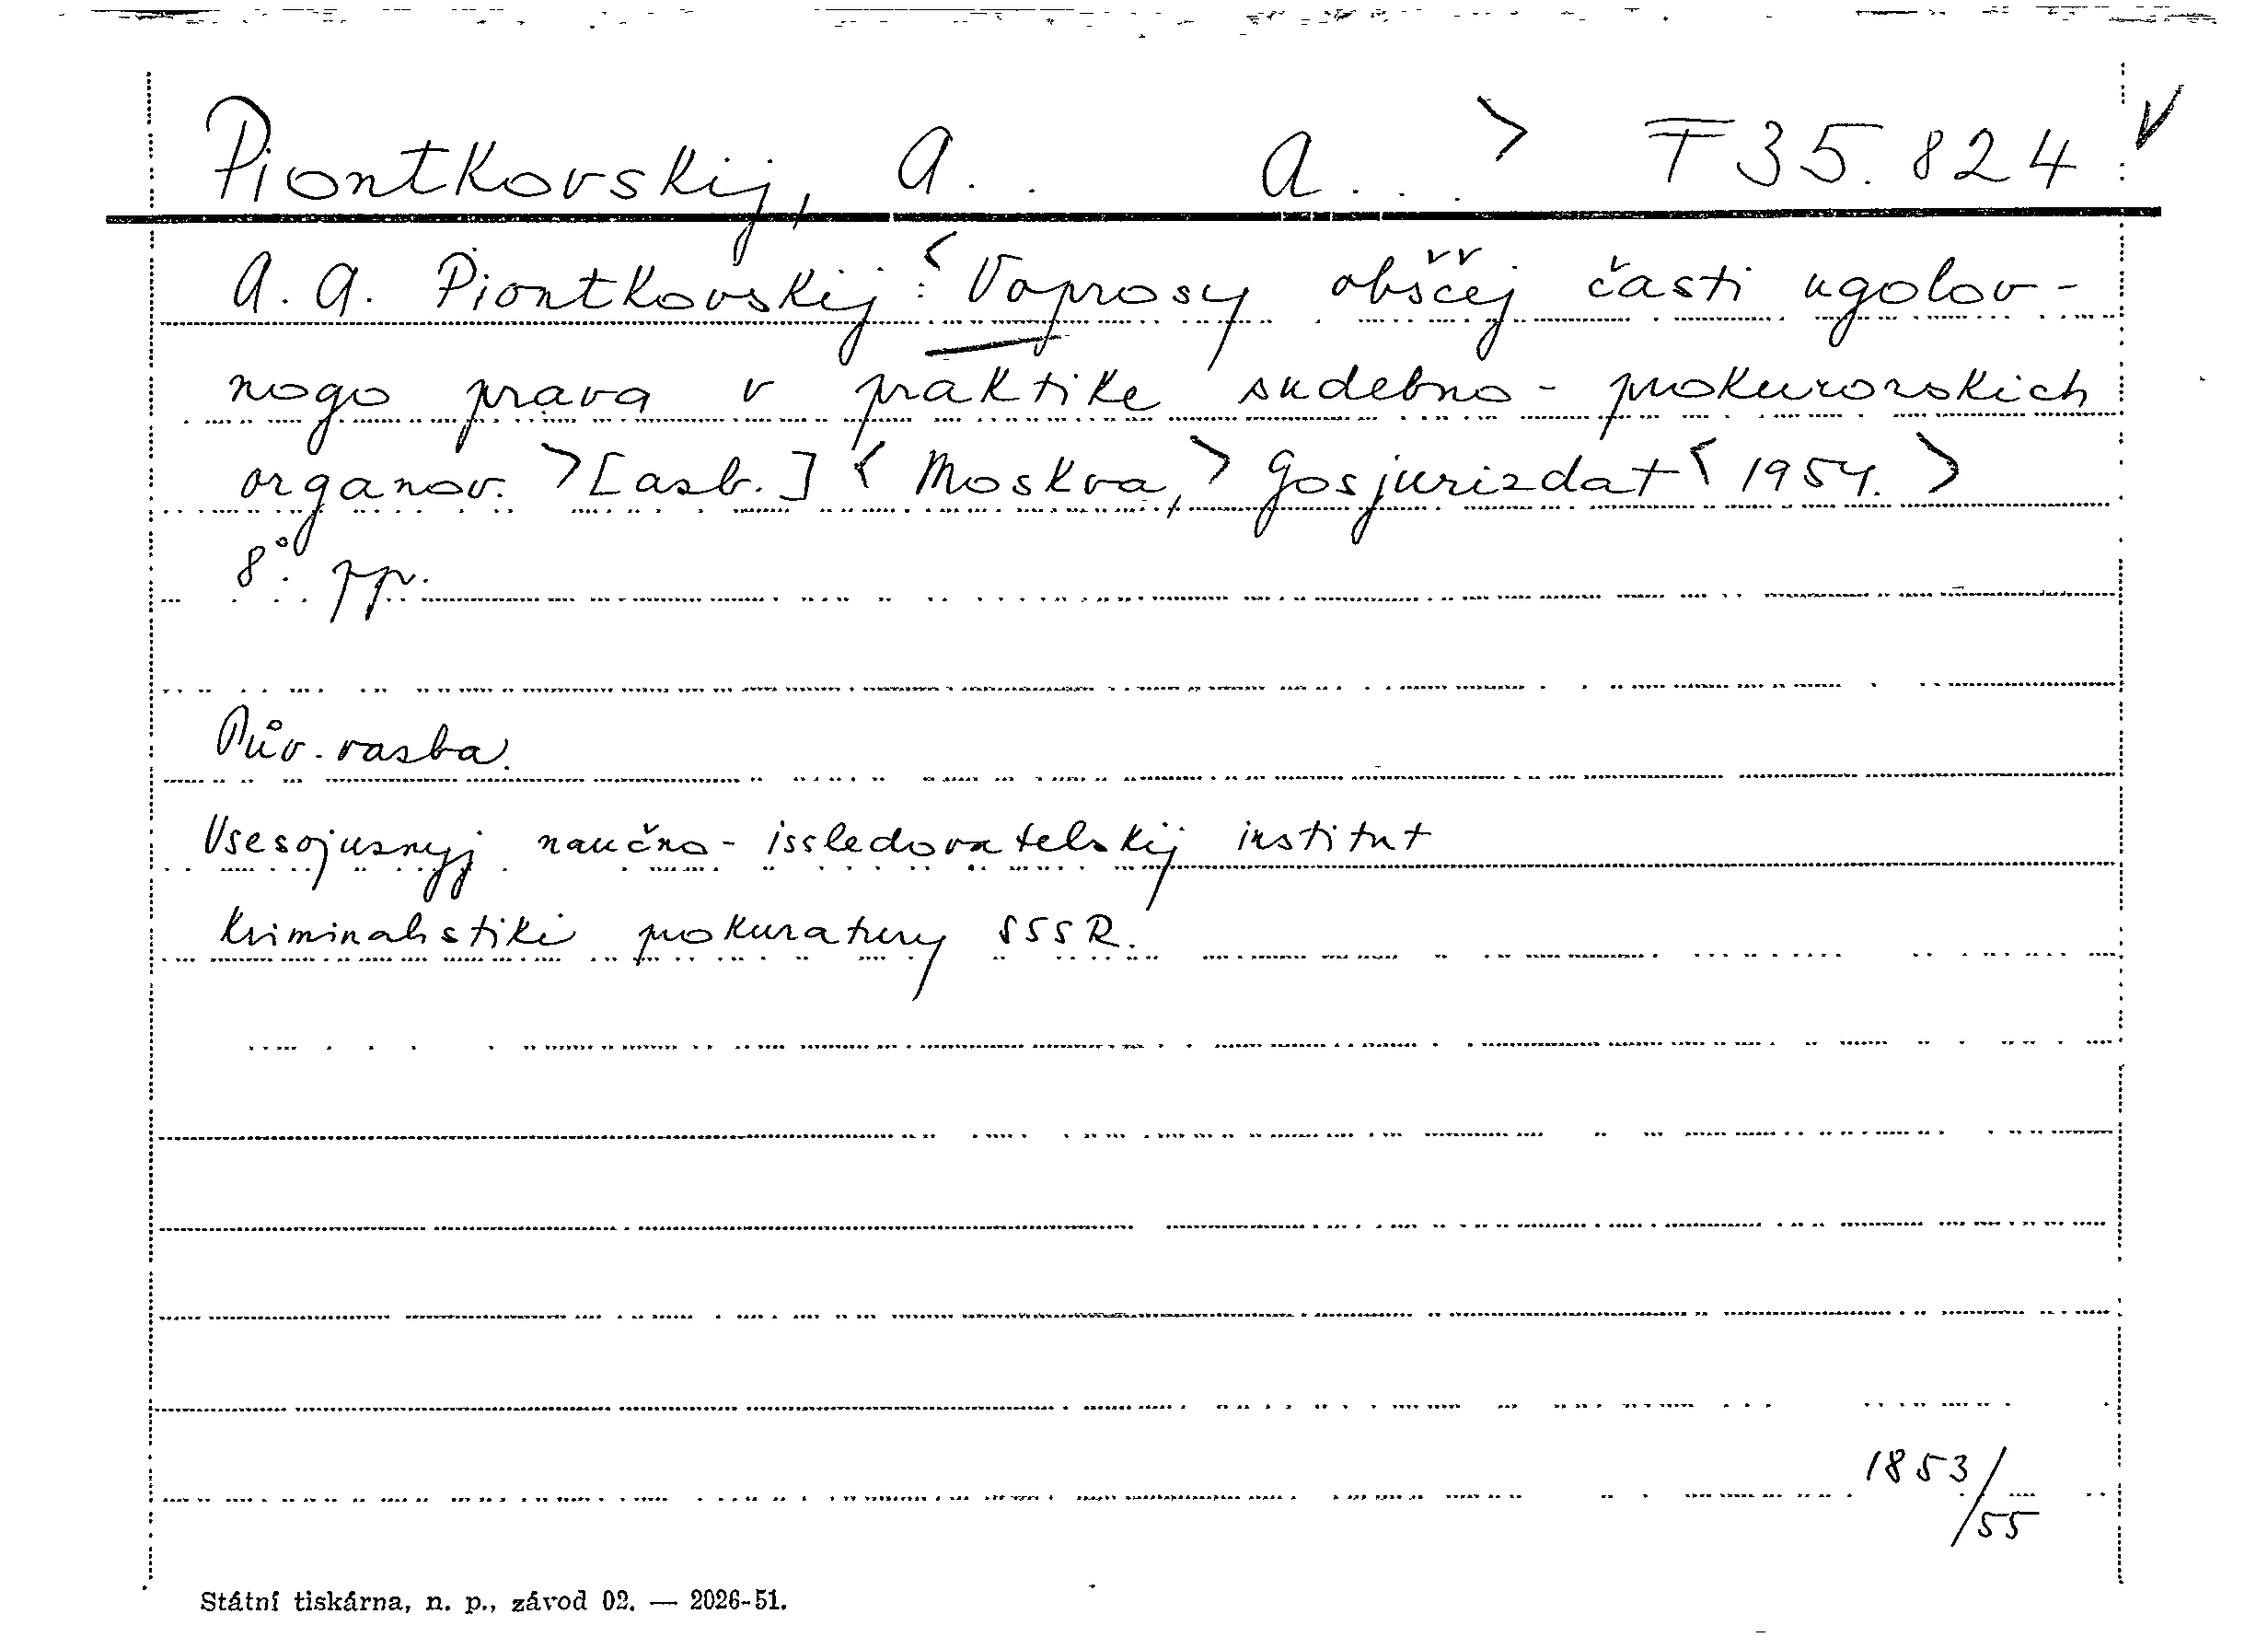 Piontkovskij, A. . A. . . > F 35.824. V
A. A. Piontkovskij: < Voprosy obščej časti ugolov-
nogo prava v praktike sudebno - prokurorskich
organov. > [azb.] < Moskva, > Gosjurizdat < 1954. >
8°. pp.
Pův. vazba.
Vsesojuznyj naučno - issledovatelskij institut
kriminalistiki prokuratury SSSR.
1853/55
Státní tiskárna, n. p., závod 02. — 2026-51.